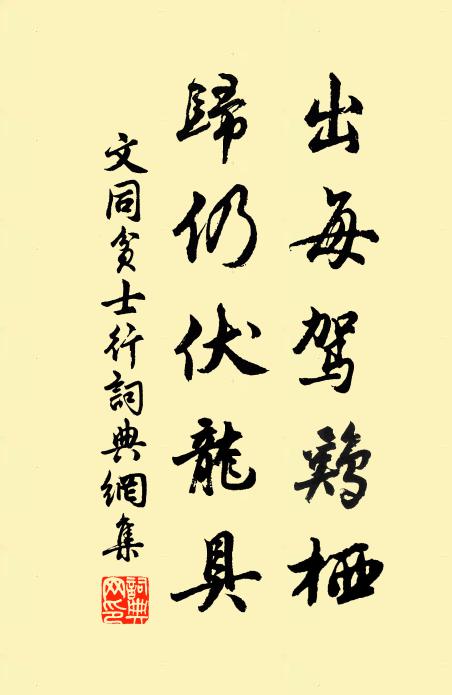 出每駕鷄栖
歸仍伏龍具
文同貧士行詞典網集
詞典網印